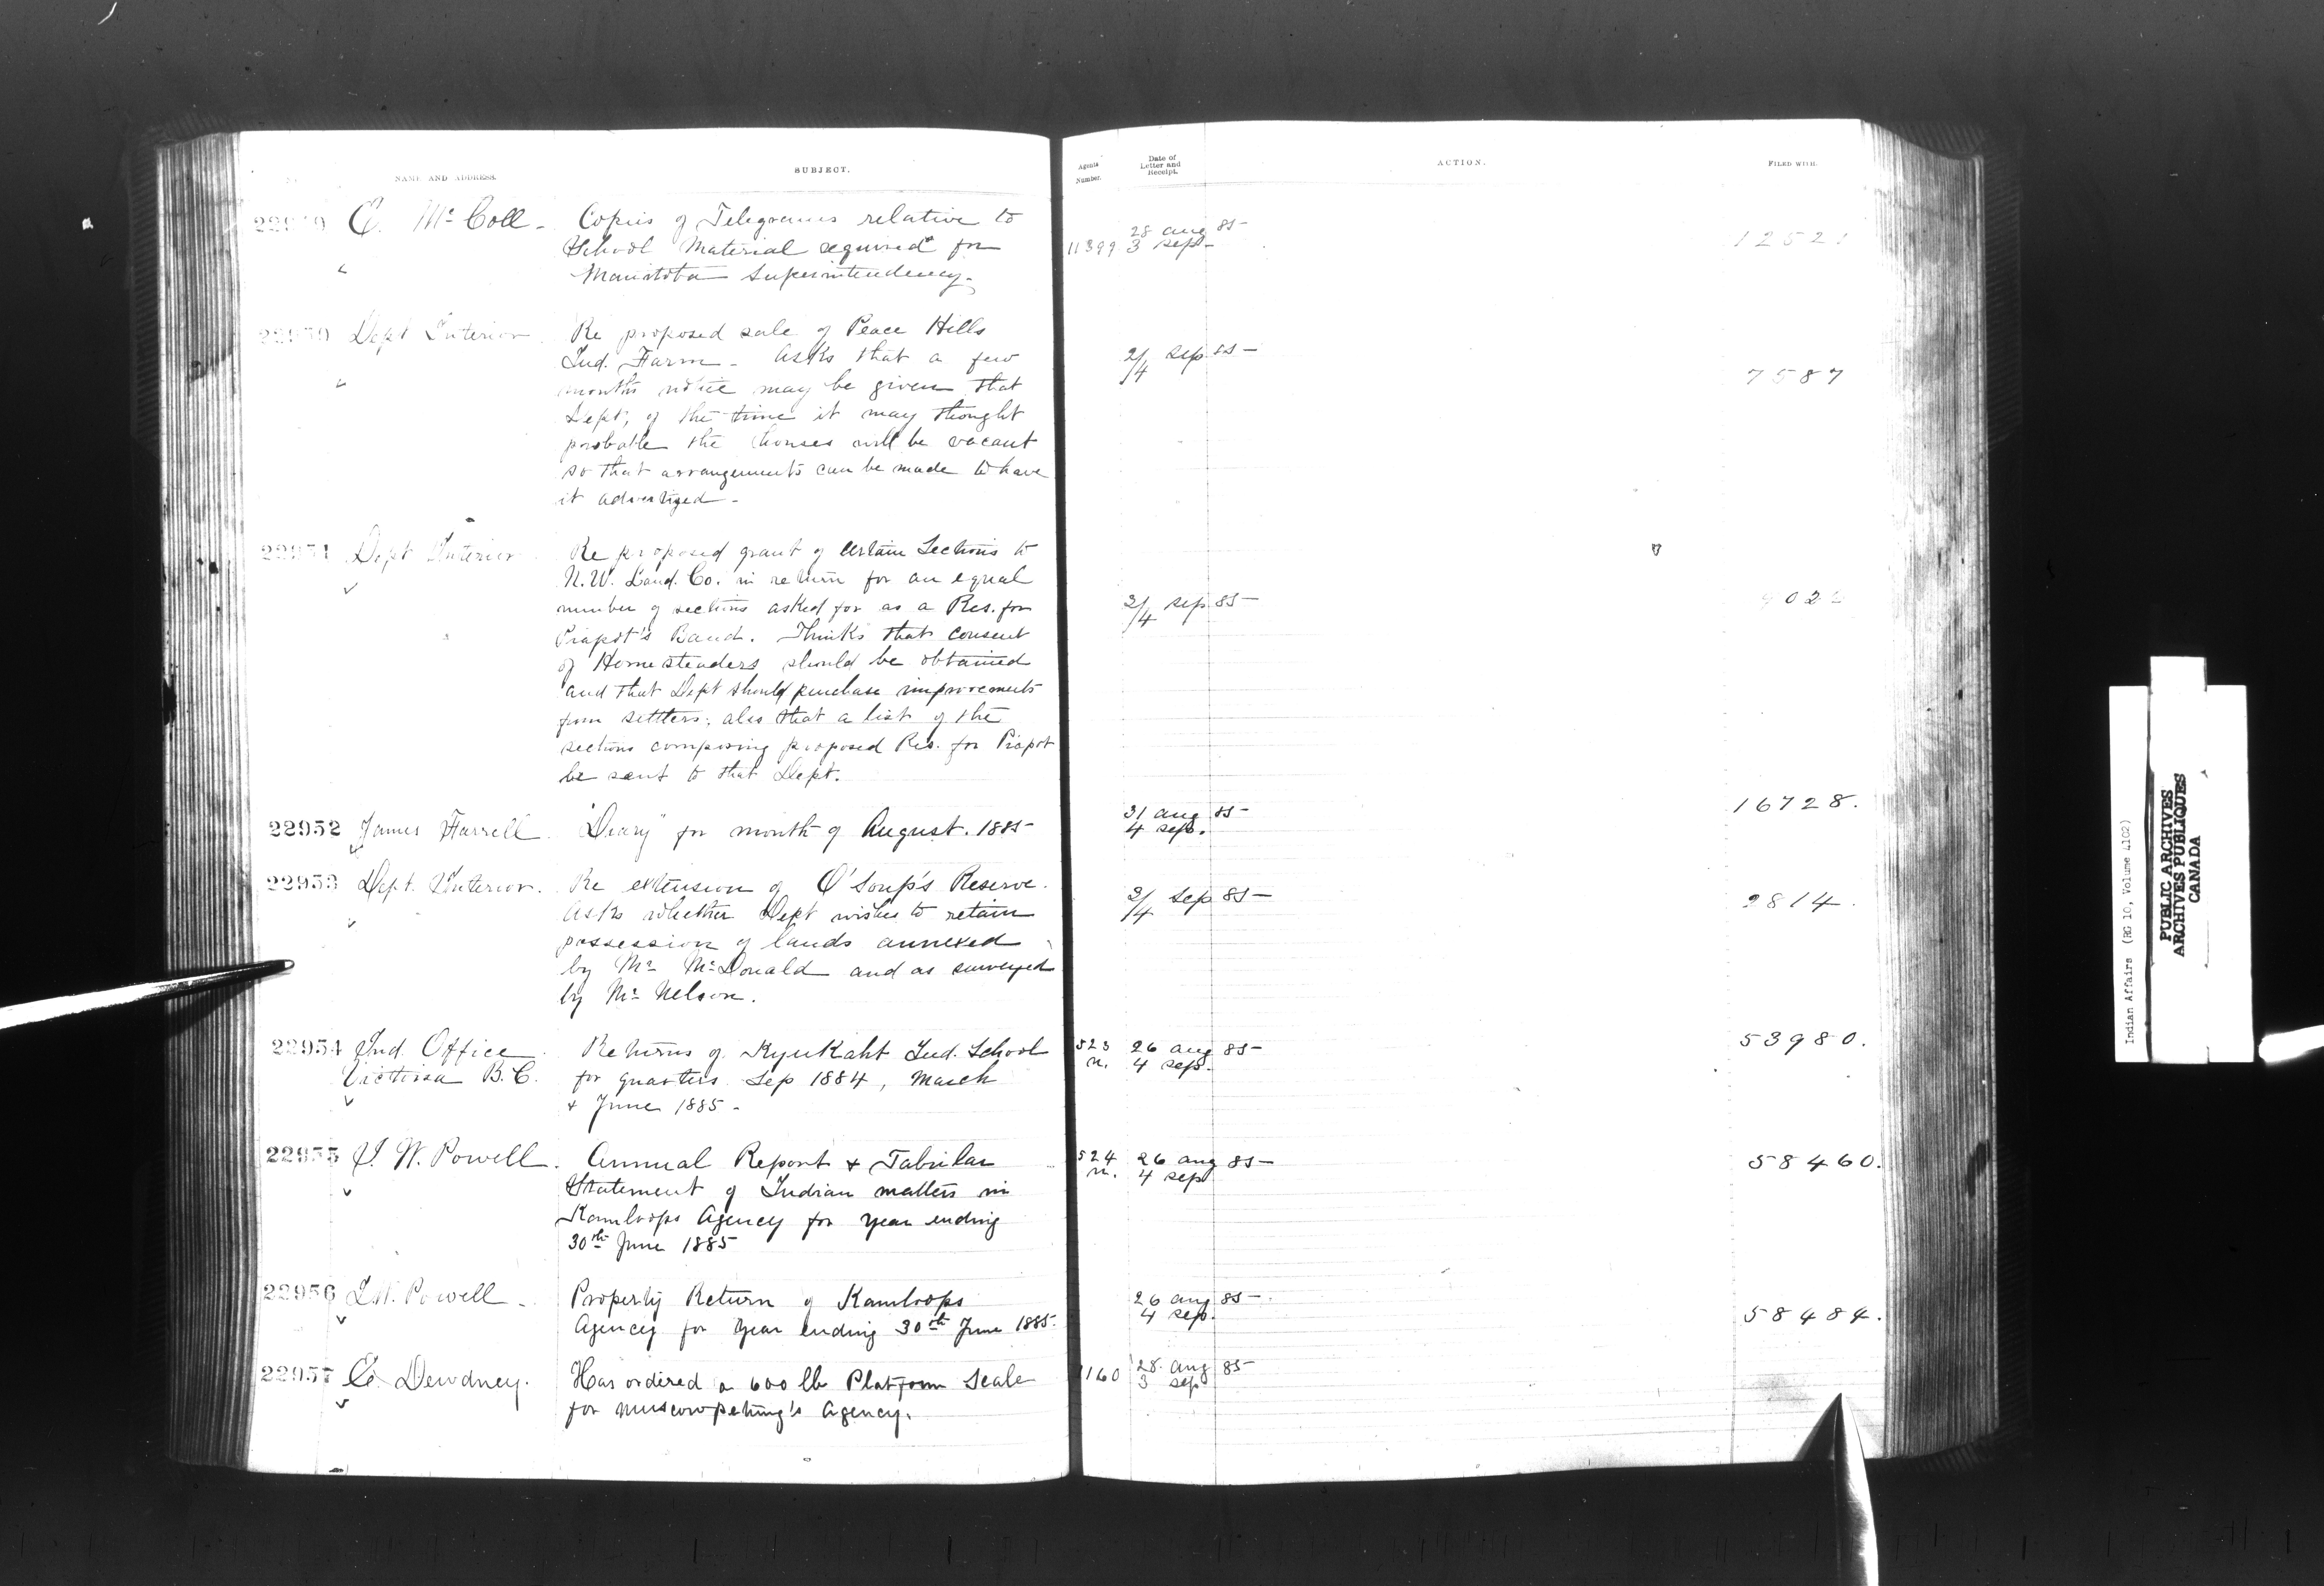 NAME AND ADDRESS.
SUBJECT.
Agents Number.
Date of Letter and Receipt.
ACTION.
FILED WITH.
22949 E. McColl - Copies of Telegrams relative to
School Material required for
Manitoba Superintendency.
11399 28 aug 85
3 sept
22950 Dept Interior Re proposed sale of Peace Hills
Ind. Farm - Asks that a few
months notice may be given that
Dept, of the time it may thought
probable the houses will be vacant
so that arrangements can be made to have
it advertized -
2/4 sep. 85
7587
22951 Dept Interior Re proposed grant of certain Sections to
N.W. Land. Co. in return for an equal
number of sections asked for as a Res. for
Piapot's Band. Thinks that consent
of Homesteaders should be obtained
and that Dept should purchase improvements
from settlers; also that a list of the
sections composing proposed Res. for Piapot
be sent to that Dept.
2/4 sep. 85
22952 James Farrell "Diary" for month of August. 1885
31 aug 85
4 sep.
16728.
22953 Dept. Interior. Re extension of O'Soup's Reserve.
Asks whether Dept wishes to retain
possession of lands annexed
by Mr McDonald and as surveyed
by Mr Nelson.
2/4 Sep 85
2814.
22954 Ind. Office
Victoria B.C.
Returns of Kyukaht Ind. School
for quarters Sep 1884, March
+ June 1885 -
523
n.
26 aug 85
4 sep.
53980.
22955 I. W. Powell. Annual Report + Tabular
Statement of Indian matters in
Kamloops Agency for year ending
30th June 1885
524
n.
26 aug 85
4 sep
58460.
22956 I.W. Powell - Property Return of Kamloops
Agency for Year ending 30th June 1885.
26 aug 85
4 sep.
58484.
22957 E. Dewdney. Has ordered a 600 lb Platform Scale
for Muscowpetung's Agency.
1160 28 aug 85
3 sep
Indian Affairs (RG 10, Volume 4102)
PUBLIC ARCHIVES
ARCHIVES PUBLIQUES
CANADA